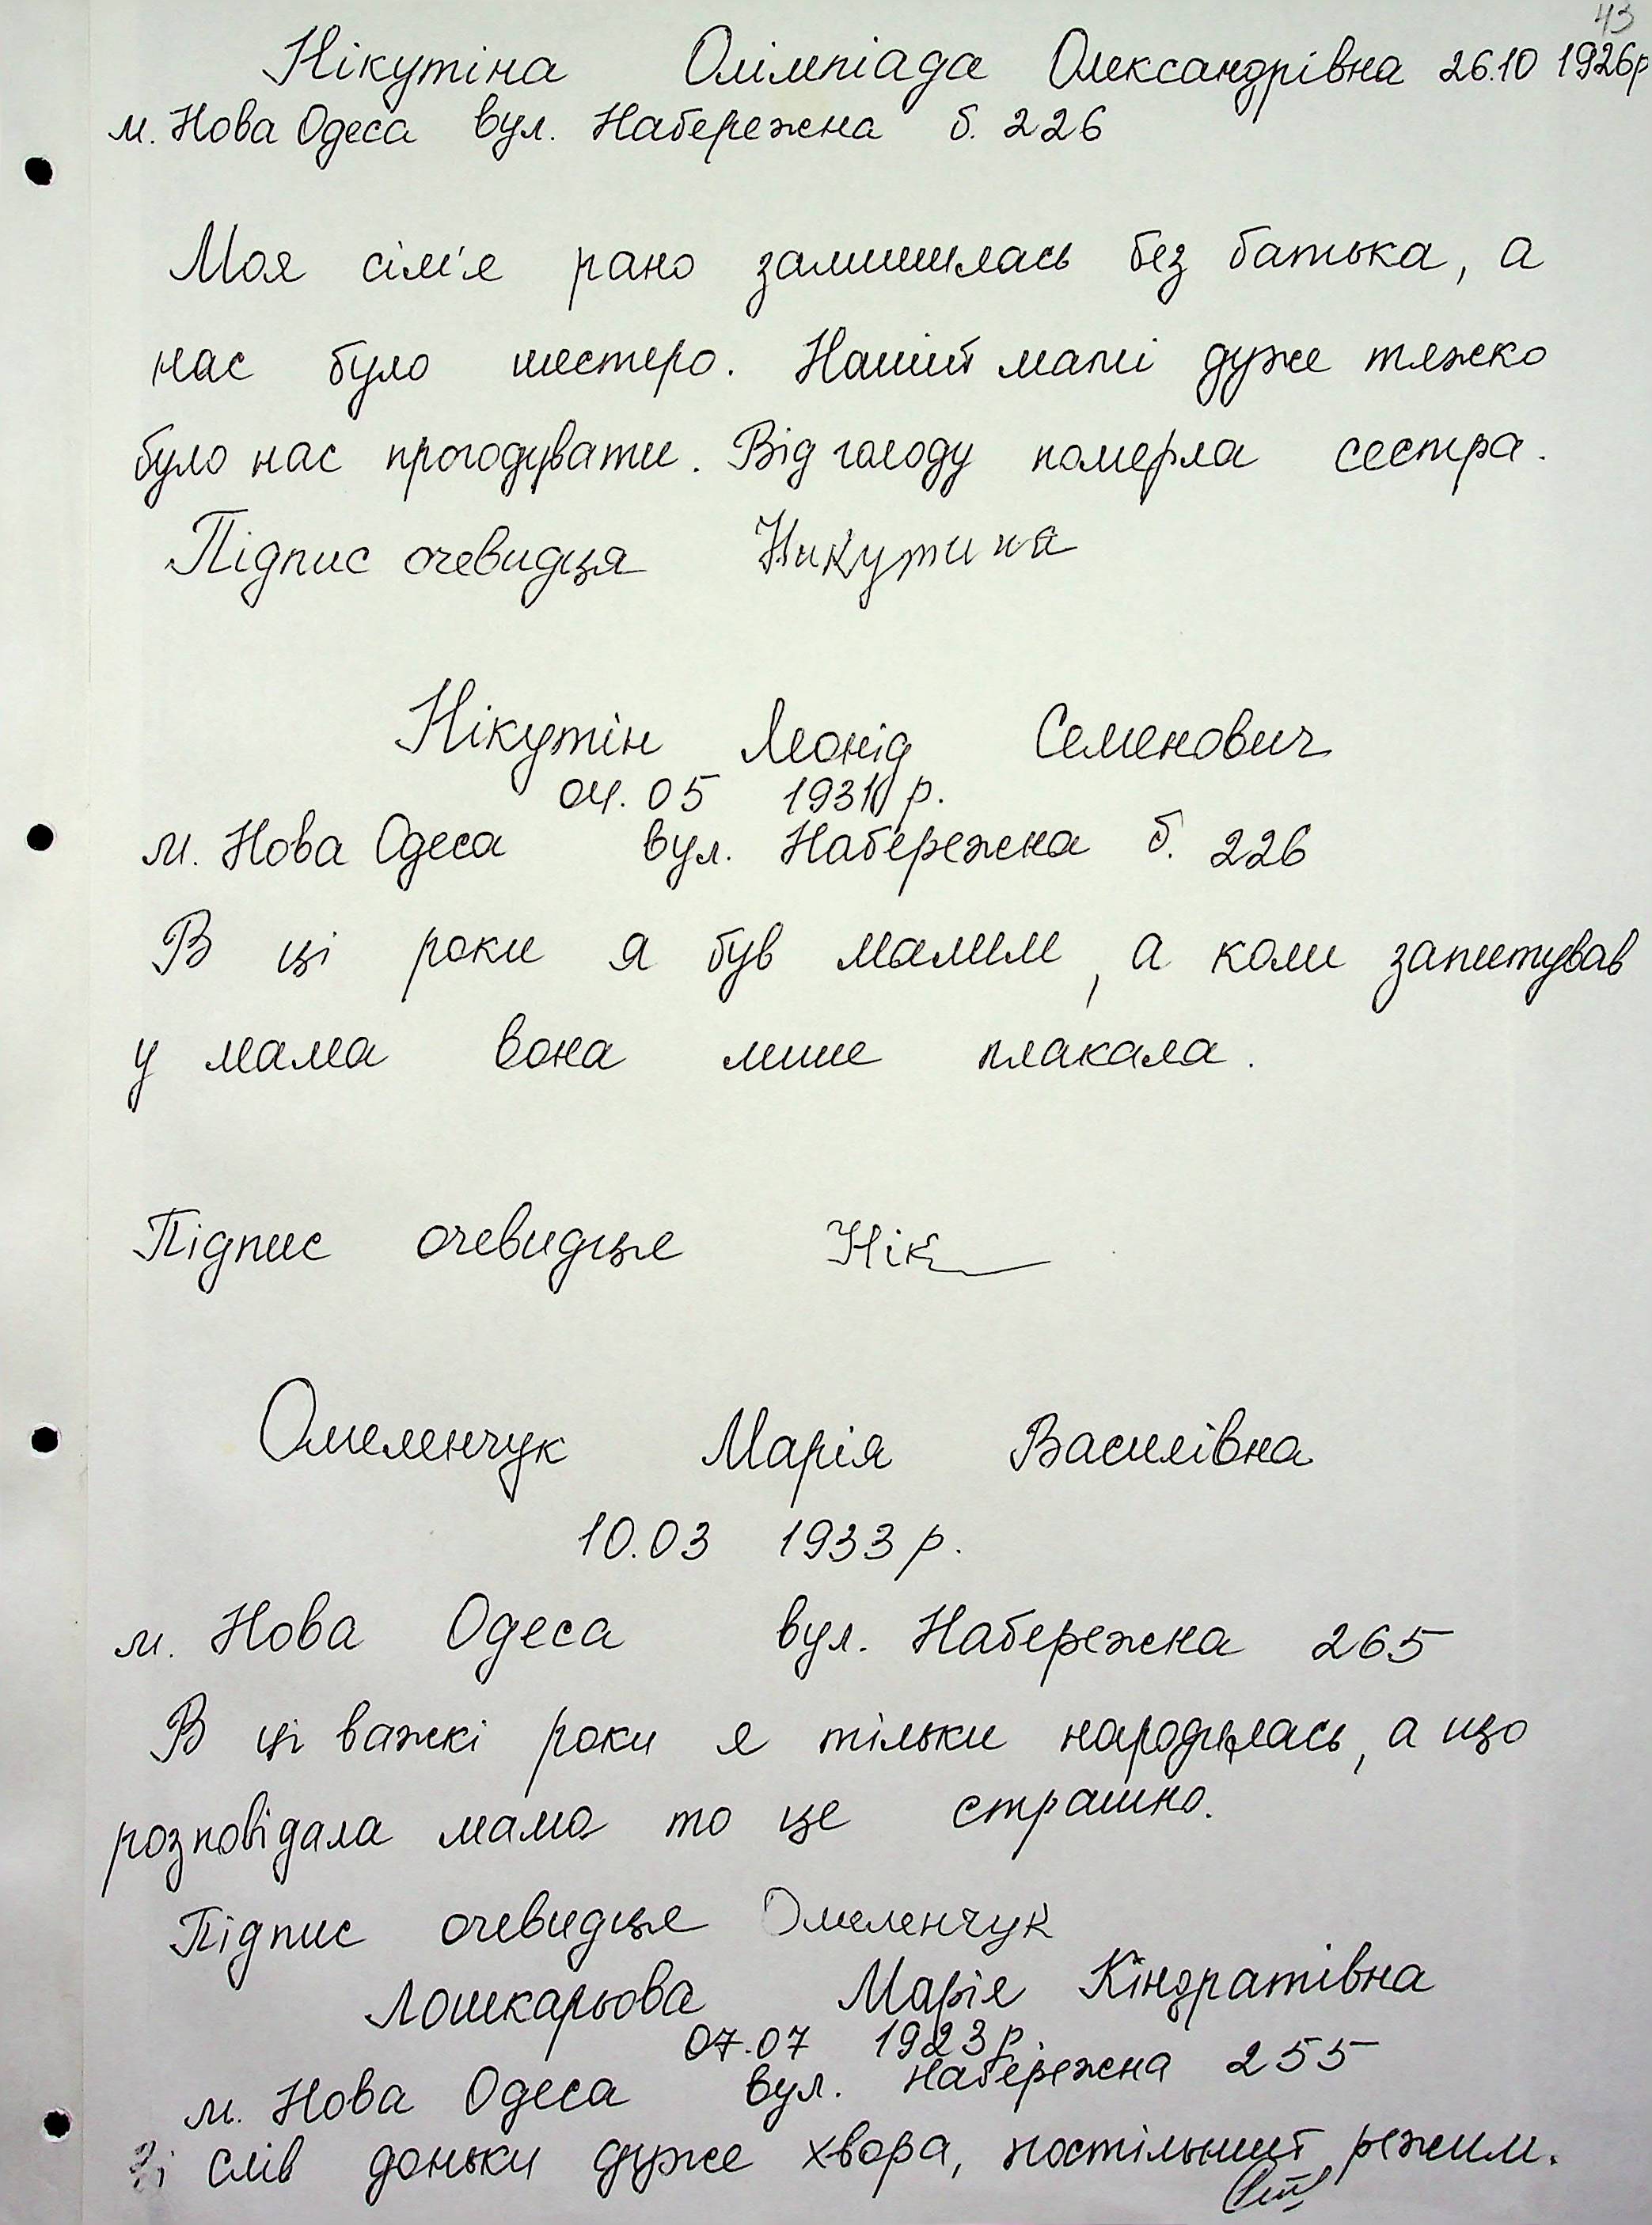 43
Нікутіна Олімпіада Олександрівна 26.10 1926р
м. Нова Одеса вул. Набережна б. 226
Моя сім'я рано залишилась без батька, а
нас було шестеро. Нашій мамі дуже тяжко
було нас прогодувати. Від голоду померла сестра.
Підпис очевидця Никутина
Нікутін Леонід Семенович
04.05 1931 р.
м. Нова Одеса вул. Набережна б. 226
В ці роки я був малим, а коли запитував
у мама вона лише плакала.
Підпис очевидця Нік
Омеленчук Марія Василівна
10.03 1933 р.
м. Нова Одеса вул. Набережна 265
В ці важкі роки я тільки народилась, а що
розповідала мама то це страшно.
Підпис очевидця Омеленчук
Лошкарьова Марія Кіндратівна
07.07 1923 р.
м. Нова Одеса вул. Набережна 255
Зі слів доньки дуже хвора, постільний режим.